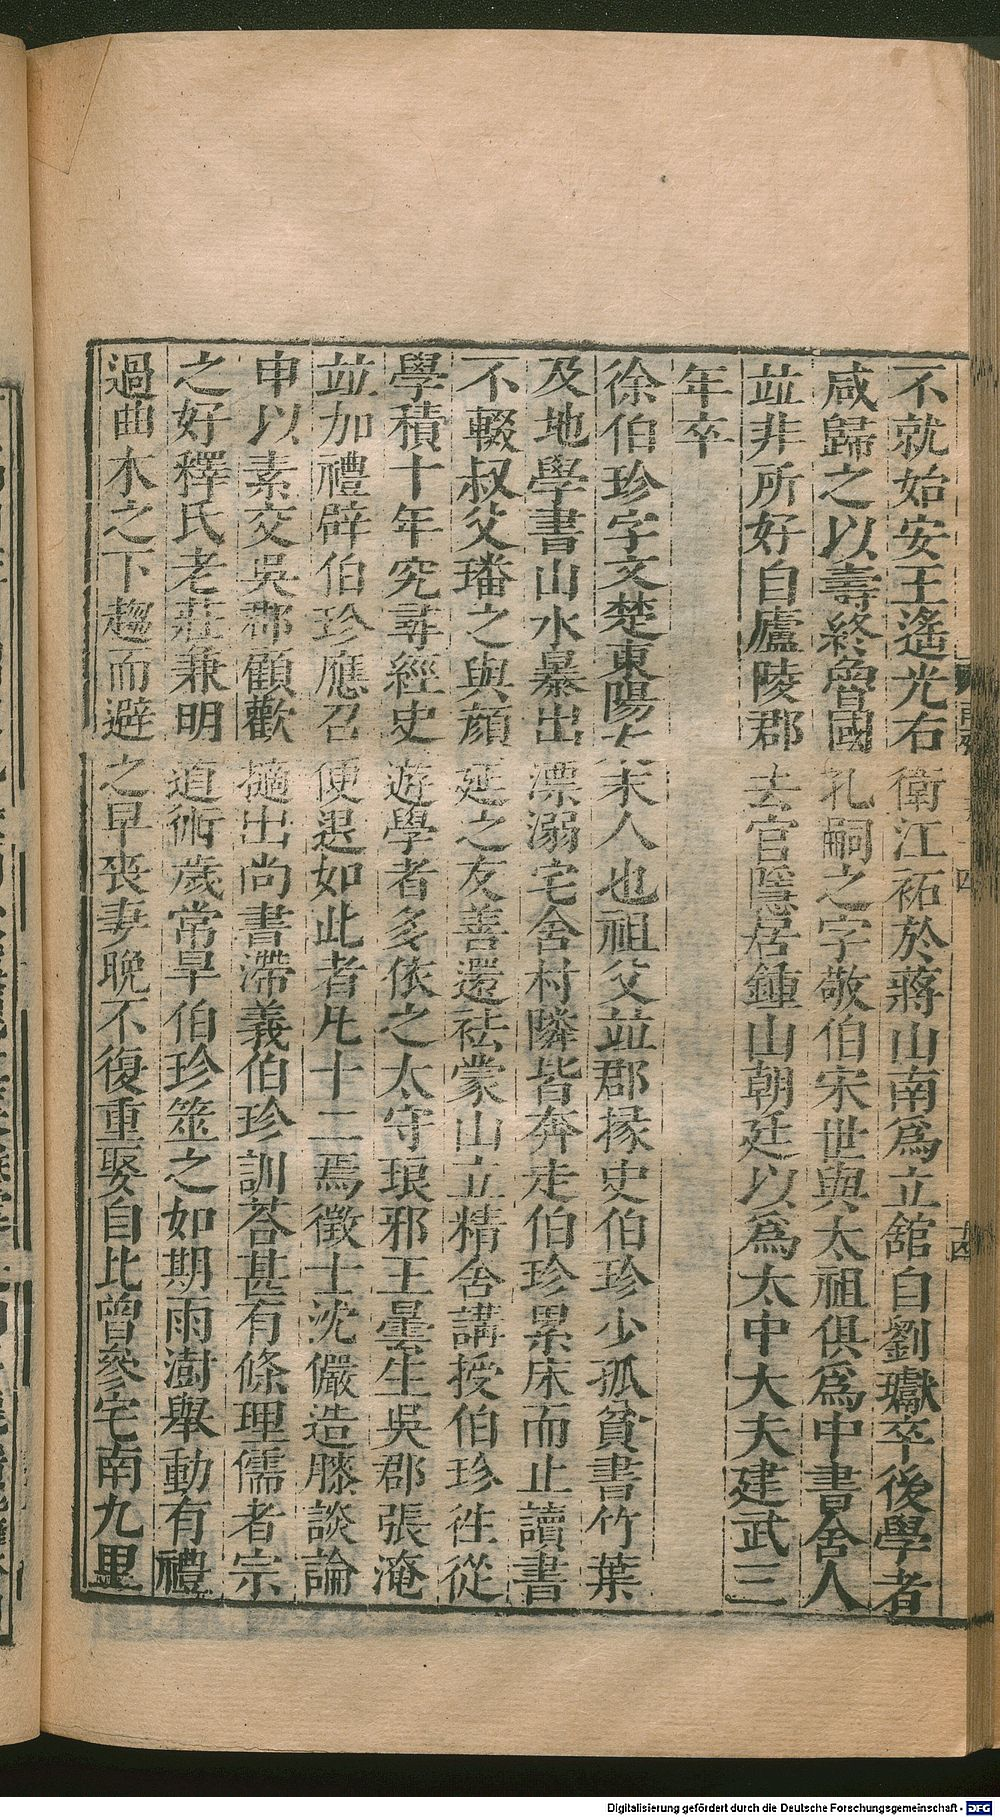 不就始安王遙光右衛江祏於蔣山南爲立舘自劉瓛卒後學者
咸歸之以壽終魯國孔嗣之字敬伯宋世與太祖俱爲中書舍人
並非所好自廬陵郡去官隱居鍾山朝廷以爲太中大夫建武三
年卒
徐伯珍字文楚東陽太末人也祖父並郡掾史伯珍少孤貧書竹葉
及地學書山水暴出漂溺宅舍村隣皆奔走伯珍累床而止讀書
不輟叔父璠之與顏延之友善還祛蒙山立精舍講授伯珍徃從
學積十年究尋經史遊學者多依之太守琅邪王曇生吳郡張淹
並加禮辟伯珍應召便退如此者凡十二焉徵士沈儼造膝談論
申以素交吳郡顧歡擿出尚書滯義伯珍訓荅甚有條理儒者宗
之好釋氏老莊兼明道術歲常旱伯珍筮之如期雨澍舉動有禮
過曲木之下趨而避之早喪妻晚不復重娶自比曾參宅南九里
十四
Digitalisierung gefördert durch die Deutsche Forschungsgemeinschaft - DFG